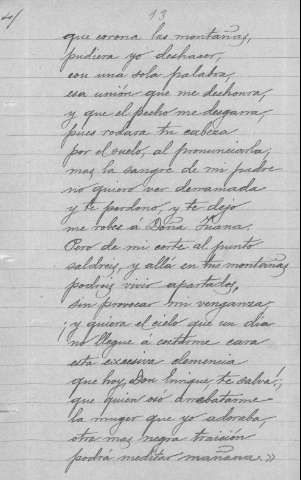 4/ 13
que corona las montañas,
pudiera yo deshacer,
con una sola palabra,
esa unión que me deshonra,
y que el pecho me desgarra,
pues rodara tu cabeza
por el suelo, al pronunciarla;
mas la sangre de mi padre
no quiero ver derramada
y te perdono, y te dejo
me robes á Doña Juana.
Pero de mi corte al punto
saldreis, y allá en tus montañas
podreis vivir apartados,
sin provocar mi venganza,
¡y quiera el cielo que un dia
no llegue á costarme cara
esta excesiva clemencia
que hoy, Don Enrique, te salva!,
que quien osó arrebatarme
la muger que yo adoraba,
otra mas negra traición
podrá meditar mañana.»